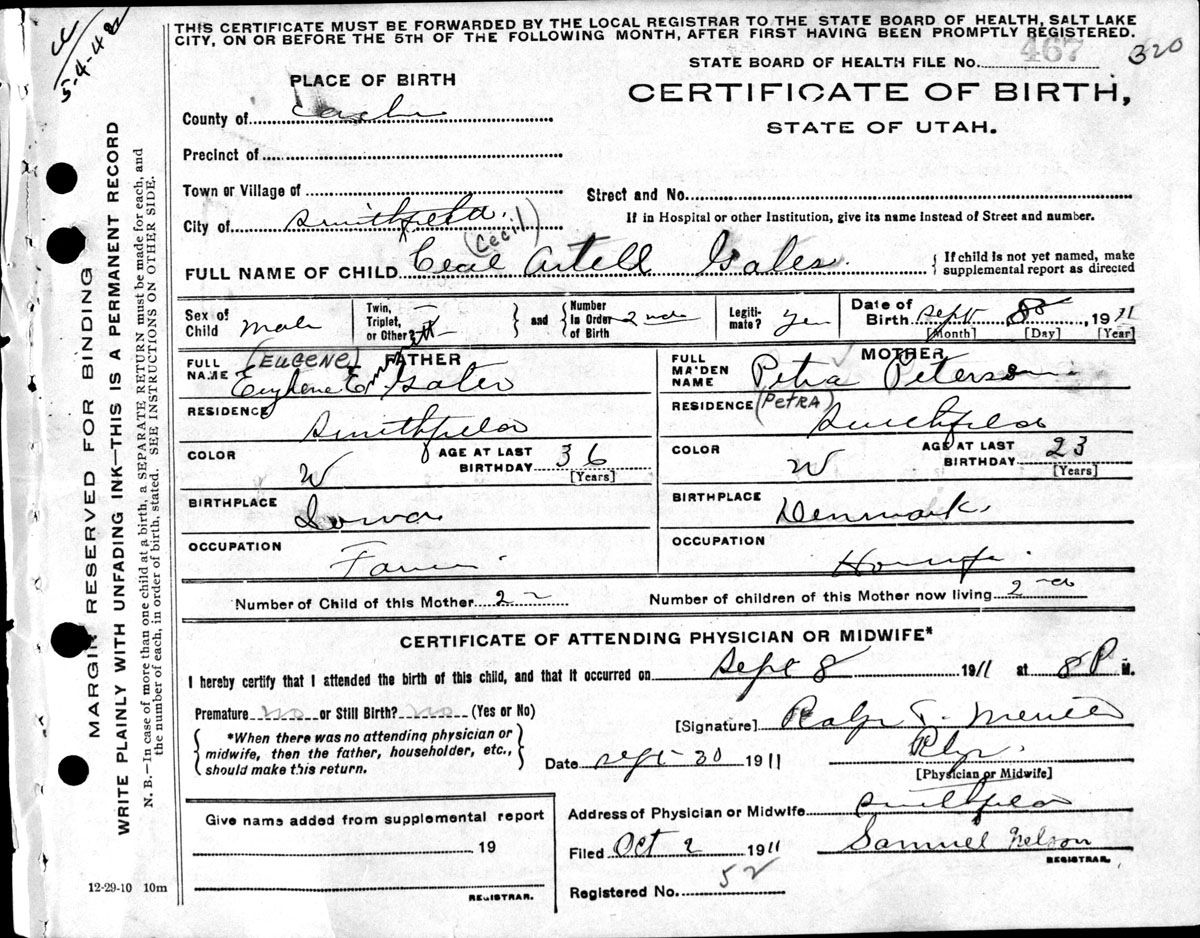 cc
5-4-42
THIS CERTIFICATE MUST BE FORWARDED BY THE LOCAL REGISTRAR TO THE STATE BOARD OF HEALTH, SALT LAKE
CITY, ON OR BEFORE THE 5TH OF THE FOLLOWING MONTH, AFTER FIRST HAVING BEEN PROMPTLY REGISTERED.
STATE BOARD OF HEALTH FILE No. 467 320
PLACE OF BIRTH
CERTIFICATE OF BIRTH,
STATE OF UTAH.
County of Cache
Precinct of
Town or Village of
Street and No.
City of Smithfield
If in Hospital or other Institution, give its name instead of Street and number.
(Cecil)
FULL NAME OF CHILD Cecil Artell Gates { If child is not yet named, make
supplemental report as directed
Sex of Child Male
Twin, Triplet, or Other
and
Number in Order of Birth 2
Legiti-mate? Yes
Date of Birth Sept 8 1911
[Month] [Day] [Year]
FATHER
FULL NAME (EUGENE) Eughene E. Gates
RESIDENCE Smithfield
COLOR W
AGE AT LAST BIRTHDAY 36
[Years]
BIRTHPLACE Iowa
OCCUPATION Farmer
MOTHER
FULL MAIDEN NAME Petra Peterson
(PETRA)
RESIDENCE Smithfield
COLOR W
AGE AT LAST BIRTHDAY 23
[Years]
BIRTHPLACE Denmark
OCCUPATION Housewife
Number of Child of this Mother 2
Number of children of this Mother now living 2
CERTIFICATE OF ATTENDING PHYSICIAN OR MIDWIFE*
I hereby certify that I attended the birth of this child, and that it occurred on Sept 8 1911 at 8 P M.
Premature no or Still Birth? no (Yes or No)
*When there was no attending physician or
midwife, then the father, householder, etc.,
should make this return.
[Signature] Ralph T. Merrill
Date Sept 30 1911
[Physician or Midwife]
Give name added from supplemental report
19
REGISTRAR.
12-29-10 10m
Address of Physician or Midwife Smithfield
Filed Oct 2 1911 Samuel Nelson
REGISTRAR.
Registered No. 52
MARGIN RESERVED FOR BINDING
WRITE PLAINLY WITH UNFADING INK—THIS IS A PERMANENT RECORD
N. B.—In case of more than one child at a birth, a SEPARATE RETURN must be made for each, and
the number of each, in order of birth, stated. SEE INSTRUCTIONS ON OTHER SIDE.